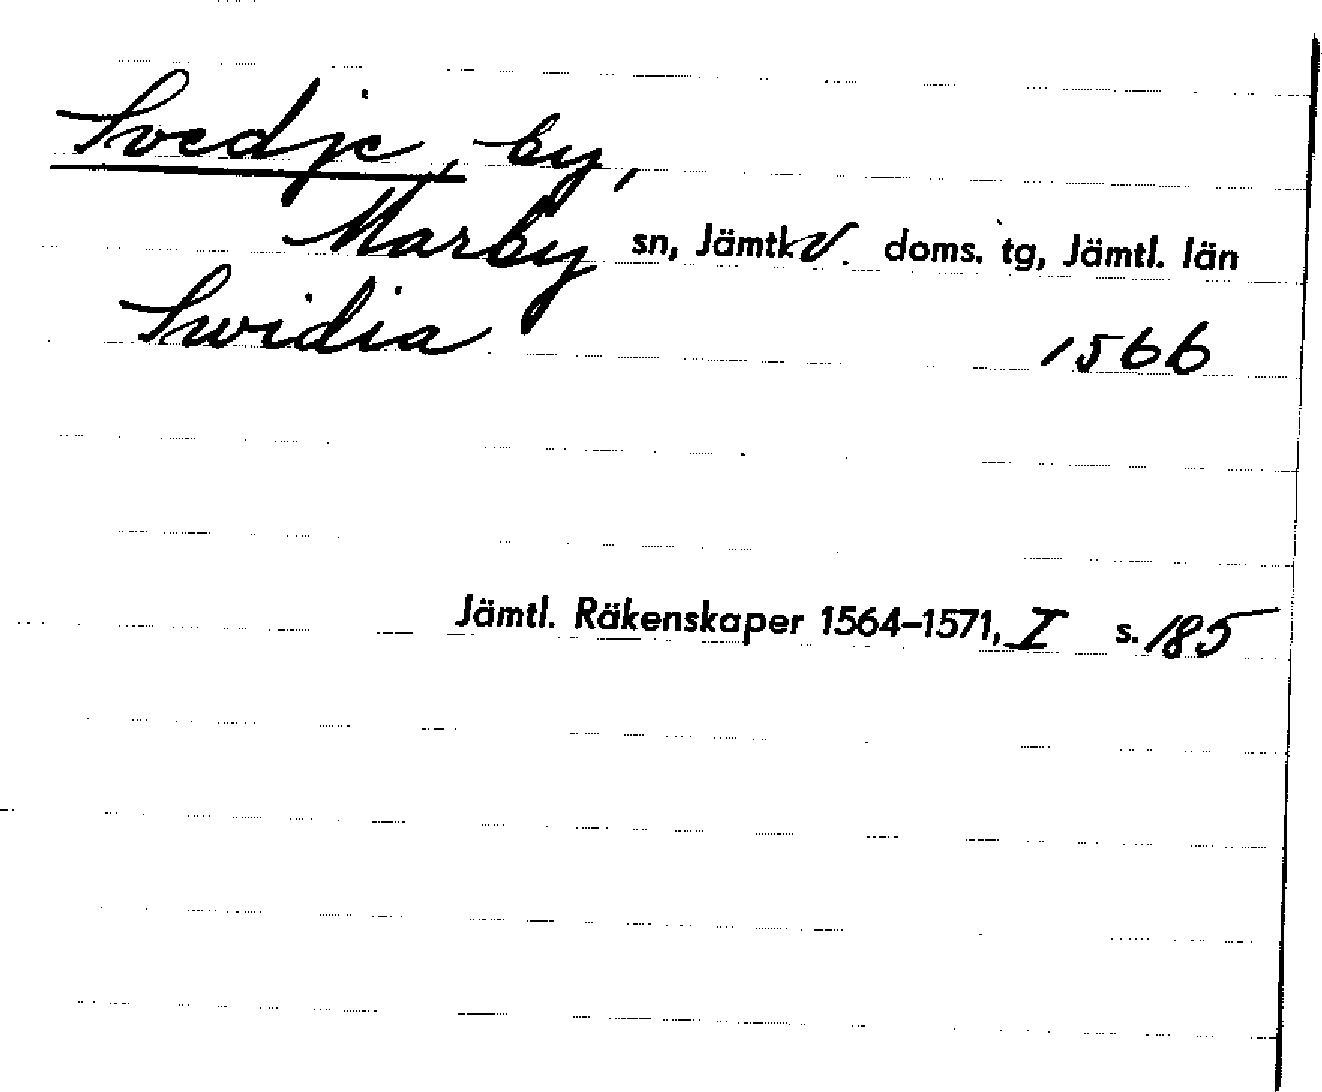 Svedje, by,
Marby sn, Jämtl. v. doms. tg, Jämtl. län
Swidia 1566
Jämtl. Räkenskaper 1564–1571, I s. 185